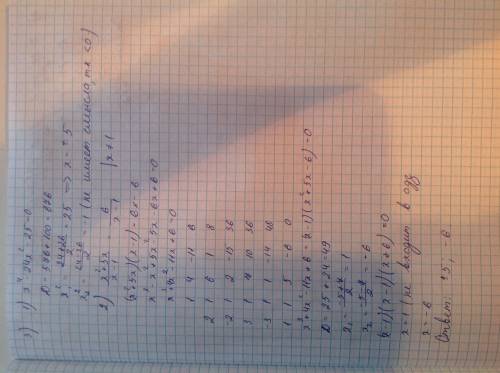 3) 1) x⁴ - 24x² - 25 = 0
D = 576 + 100 = 676
x² = (24+26)/2 = 25 => x = ±5
x² = (24-26)/2 = -1 (не имеет смысла, тк < 0)
2) (x²+5x)/(x-1) = 6/(x-1) | x ≠ 1
(x²+5x)(x-1) = 6x - 6
x³ - x² + 5x² - 5x - 6x + 6 = 0
x³ + 4x² - 11x + 6 = 0
1 4 -11 6
2 1 6 1 8
-2 1 2 -15 36
3 1 7 10 36
-3 1 1 -14 48
1 1 5 -6 0
x³ + 4x² - 11x + 6 = (x-1)(x² + 5x - 6) = 0
D = 25 + 24 = 49
x₁ = (-5+7)/2 = 1
x₂ = (-5-7)/2 = -6
(x-1)(x-1)(x+6) = 0
x = 1 (не входит в одз)
x = -6
Ответ: ±5; -6